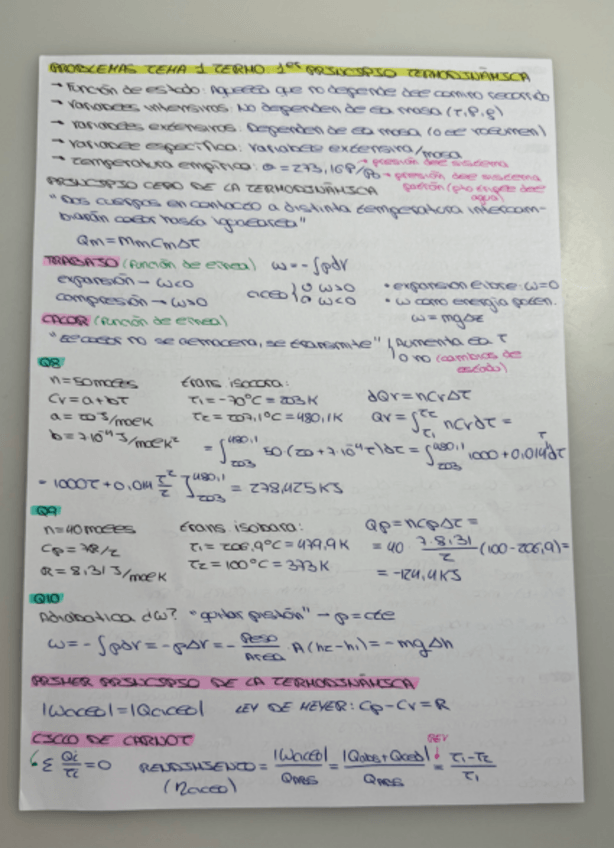 PROBLEMAS TEMA 1 TERMO 1er PRINCIPIO TERMODINÁMICA
→ Función de estado: Aquella que no depende del camino recorrido
→ variables intensivas: No dependen de la masa (T, P, ρ)
→ variables extensivas: Dependen de la masa (o el volumen)
→ variable específica: variable extensiva/masa
→ temperatura empírica: θ = 273,16 P/P0 → presión del sistema
→ presión del sistema
patrón (pto triple del agua)
PRINCIPIO CERO DE LA TERMODINÁMICA
"Dos cuerpos en contacto a distinta temperatura intercam-
biarán calor hasta igualarla"
Qm = mmCmΔT
TRABAJO (función de línea) ω = -∫pdV
expansión → ω<0
compresión → ω>0
ciclo { ↺ ω>0
↻ ω<0
• expansion libre: ω=0
• ω como energía poten.
ω = mgΔz
CALOR (función de línea)
"el calor no se almacena, se transmite" { Aumenta la T
O no (cambios de estado)
Q8
n = 50 moles trans isocora: dQv = nCvΔT
Cv = a+bT T1 = -70°C = 203K Qv = ∫T1T2 nCvdT =
a = 20 J/molK T2 = 207,1°C = 480,1K
b = 7·10⁻⁴ J/molK² = ∫203480,1 50(20+7·10⁻⁴T)dT = ∫203480,1 1000+0,014TdT
= 1000T + 0,014 T²/2 ]203480,1 = 278,425 KJ
Q9
n = 40 moles trans isobara: Qp = nCpΔT =
Cp = 7R/2 T1 = 206,9°C = 479,9K = 40 · 7·8,31/2 (100-206,9) =
R = 8,31 J/molK T2 = 100°C = 373K = -124,4 KJ
Q10
Adiabatica d ω? "gortar pistón" → p = cte
ω = -∫pdV = -pΔV = - Peso/Area · A(h2-h1) = -mgΔh
PRIMER PRINCIPIO DE LA TERMODINÁMICA
|Wciclo| = |Qciclo| LEY DE MEYER: Cp - Cv = R
CICLO DE CARNOT
↳ Σ Qi/Ti = 0 RENDIMIENTO = |Wciclo|/QABS = |Qabs+Qced|/QABS = T1-T2/T1
REV
(ηciclo)